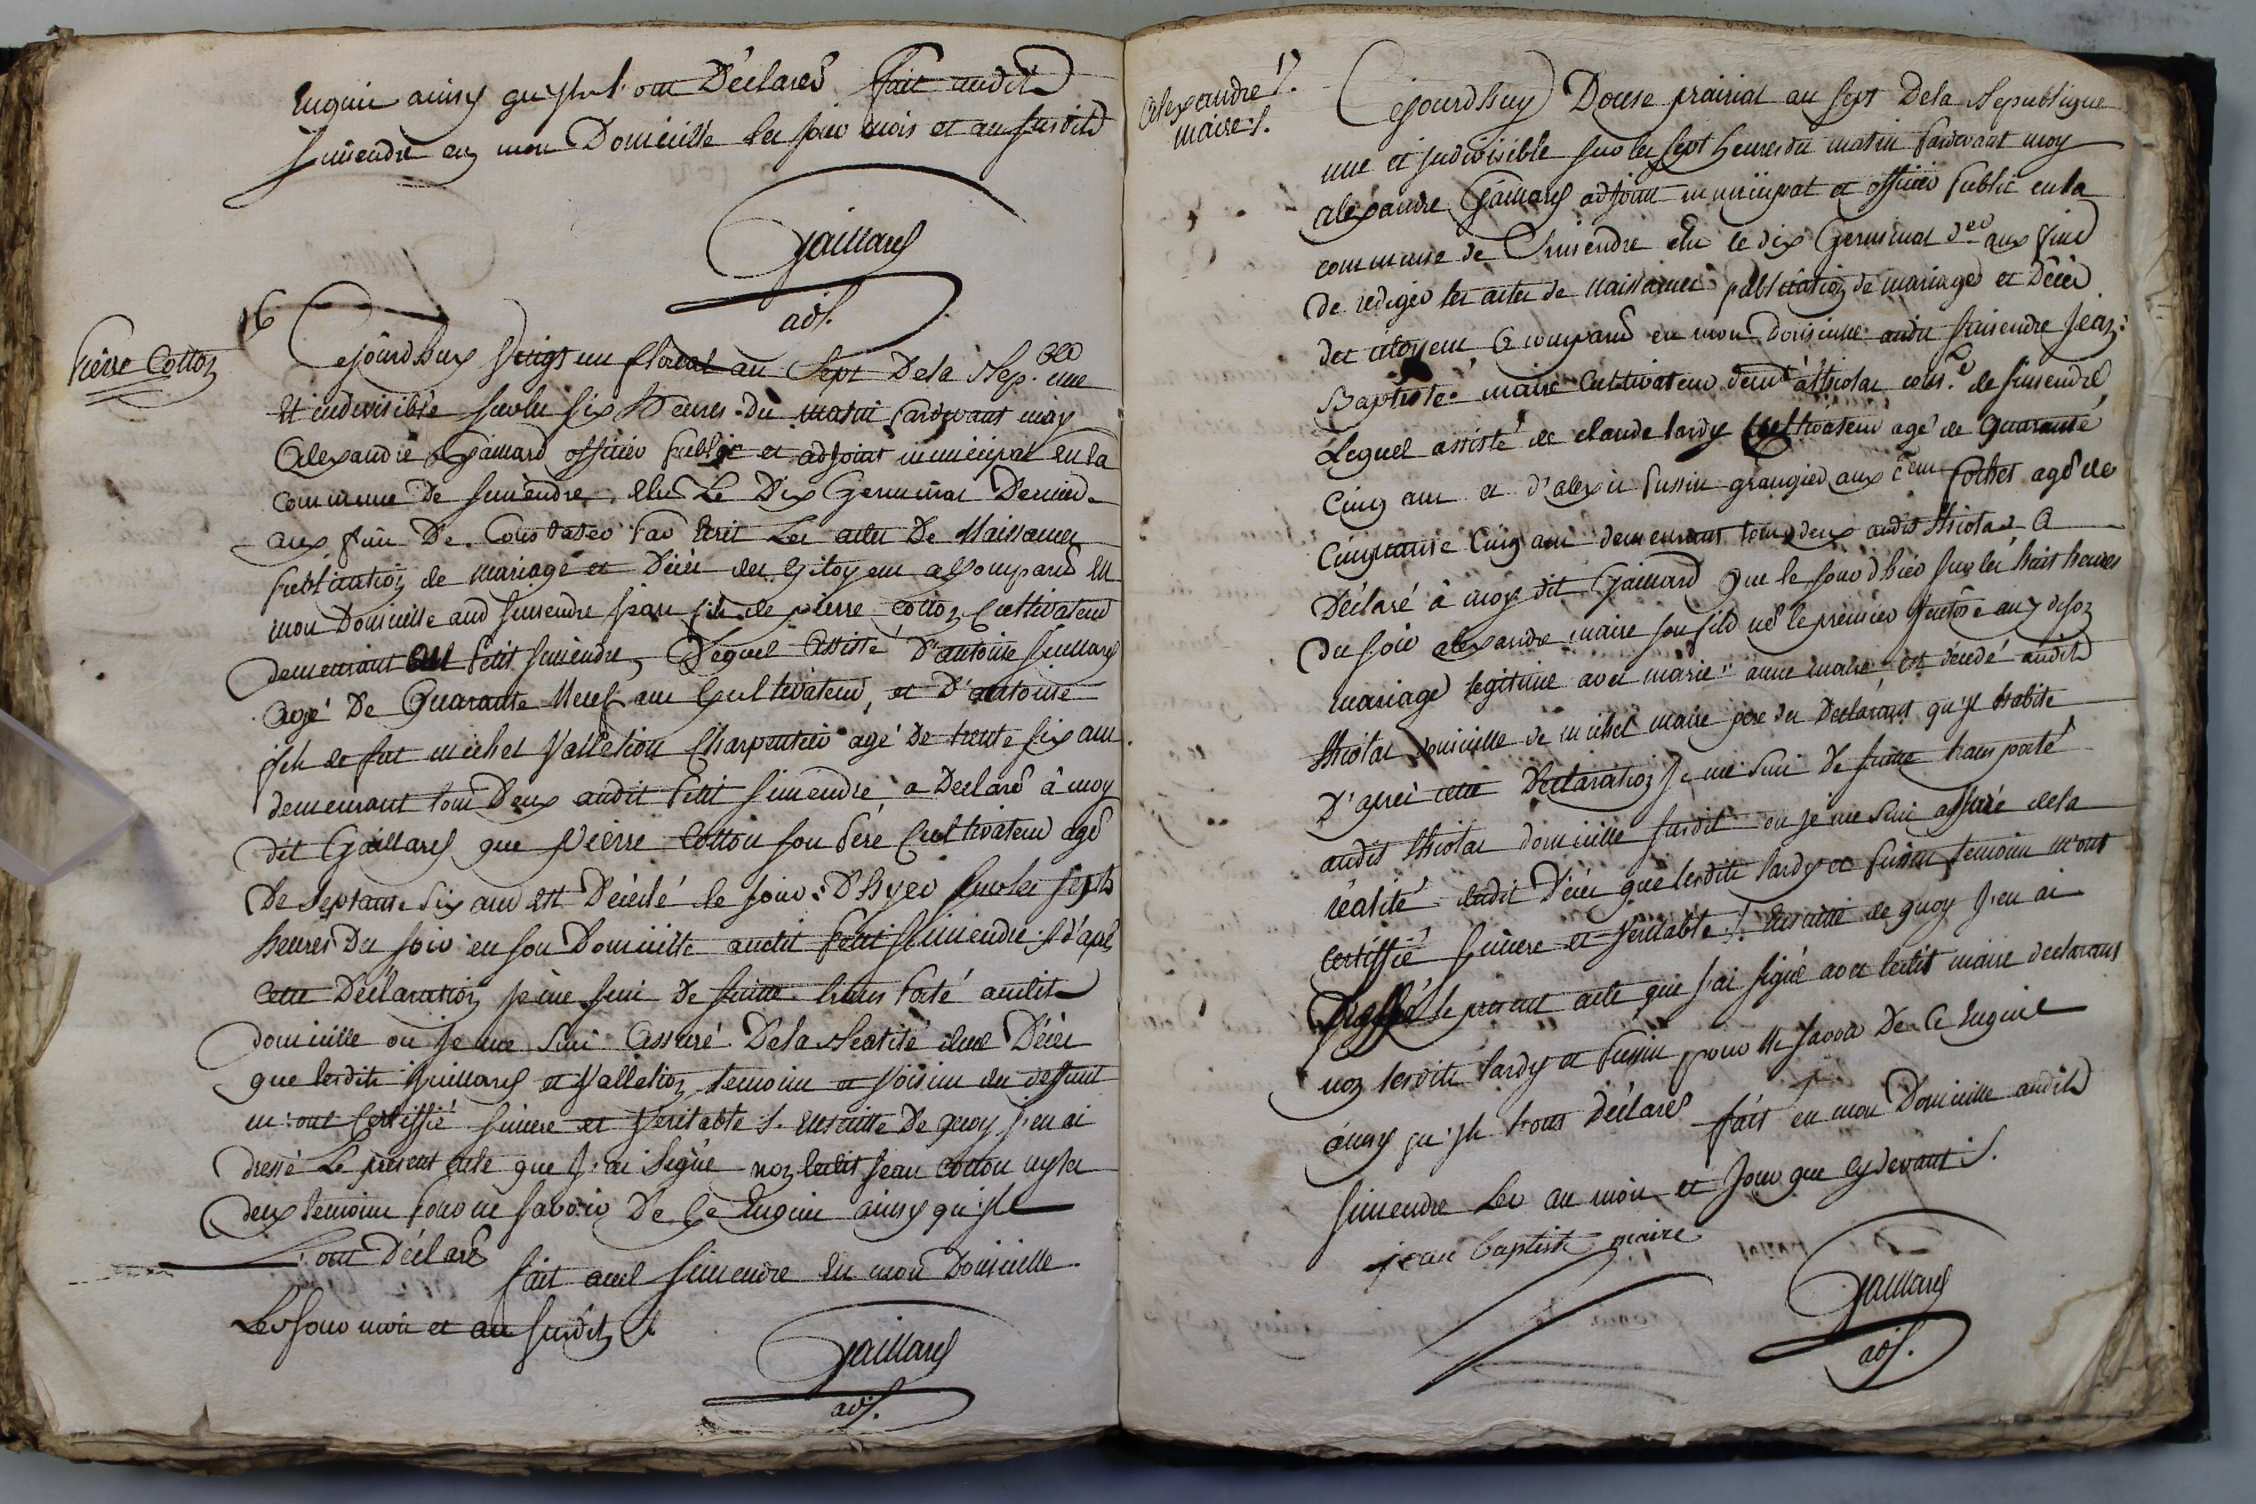 Enquis ainsy qu'ils l'ont Déclarés fait audit
Simendre en mon Domicille les jour mois et an susdits
Gaillard
adj.
16
Pierre Cotton
Cejourdhuy Vingt un floreal an Sept Dela Rep. une
Et indivisible sur les six heures du matin pardevant moy
Alexandre Gaillard officier public et adjoint municipal en la
commune De Simendre, elu Le Dix Germinal Dernier
aux fins De Constater par Ecrit Les actes De Naissances
publication de mariage et Décès des Citoyens a comparu en
mon Domicille aud Simendre Jean fils de pierre cotton Cultivateur
demeurant au Petit Simendre, Lequel assisté D'antoine
agé De Quarante Neuf ans Cultivateur, et D'antoine
fils de feu michel Valletion Charpentier agé De trente six ans
demeurant tous Deux audit Petit Simendre a Declaré à moy
dit Gaillard que Pierre Cotton son Père Cultivateur agé
De Septante Six ans est Décédé le jour D'hyer sur les sept
heures Du soir en son Domicille audit Petit Simendre d'après
Cette Déclaration je me suis De suitte transporté audit
domicille ou Je me suis assuré Dela Realité dud Décès
que lesdits et Valletion temoins et voisins du deffunt
m'ont Certiffié sincere et veritable S. ensuitte De quoy j'en ai
dressé Le present acte que J'ai Signé non ledit Jean Cotton ny les
deux temoins pour ne savoir De ce Enquis ainsy qu'ils
L'ont Déclaré
fait aud Simendre En mon Domicille
Les Jour mois et an susdits
Gaillard
adj.
Alexandre 17.
maire S.
Cejourdhuy Douse prairial an sept Dela Republique
une et indivisible sur les sept heures du matin Pardevant moy
alexandre Gaillard adjoint municipal et officier Public en la
commune de Simendre elu le dix Germinal der aux fins
de rediger les actes de Naissances publication de mariages et Décès
des citoyens a comparu en mon domicille audit Simendre Jean
Baptiste maire Cultivateur demt a com.e de Simendre
Lequel assisté de claude tardy Cultivateur agé de Quarante
Cinq ans et d'alexis granger aux agé de
Cinquante Cinq ans demeurant tous deux audit a
Déclaré à moy dit Gaillard que le jour d'hier sur les huit heures
du soir alexandre maire son fils né le premier an 7 de son
mariage legitime avec marie anne maire, est decedé audit
domicille de michel maire père du Declarant qu'il habite
D'après cette Declaration Je me suis De suitte transporté
audit domicille susdit ou je me suis assuré dela
réalité dudit Décès que lesdits tardy et temoins m'ont
certiffié sincere et veritable S. Ensuitte de quoy J'en ai
le present acte que j'ai signé avec ledit maire declarant
non lesdits tardy et pour ne savoir De ce Enquis
ainsy qu'ils l'ont Déclarés fait en mon Domicille audit
Simendre Les an mois et Jour que cydevant S.
jean baptiste maire
Gaillard
adj.